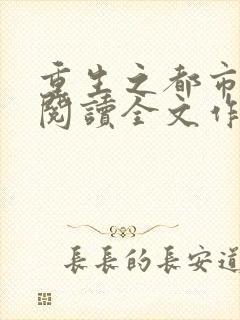 重生之都市
閱讀全文作
長長的長安道